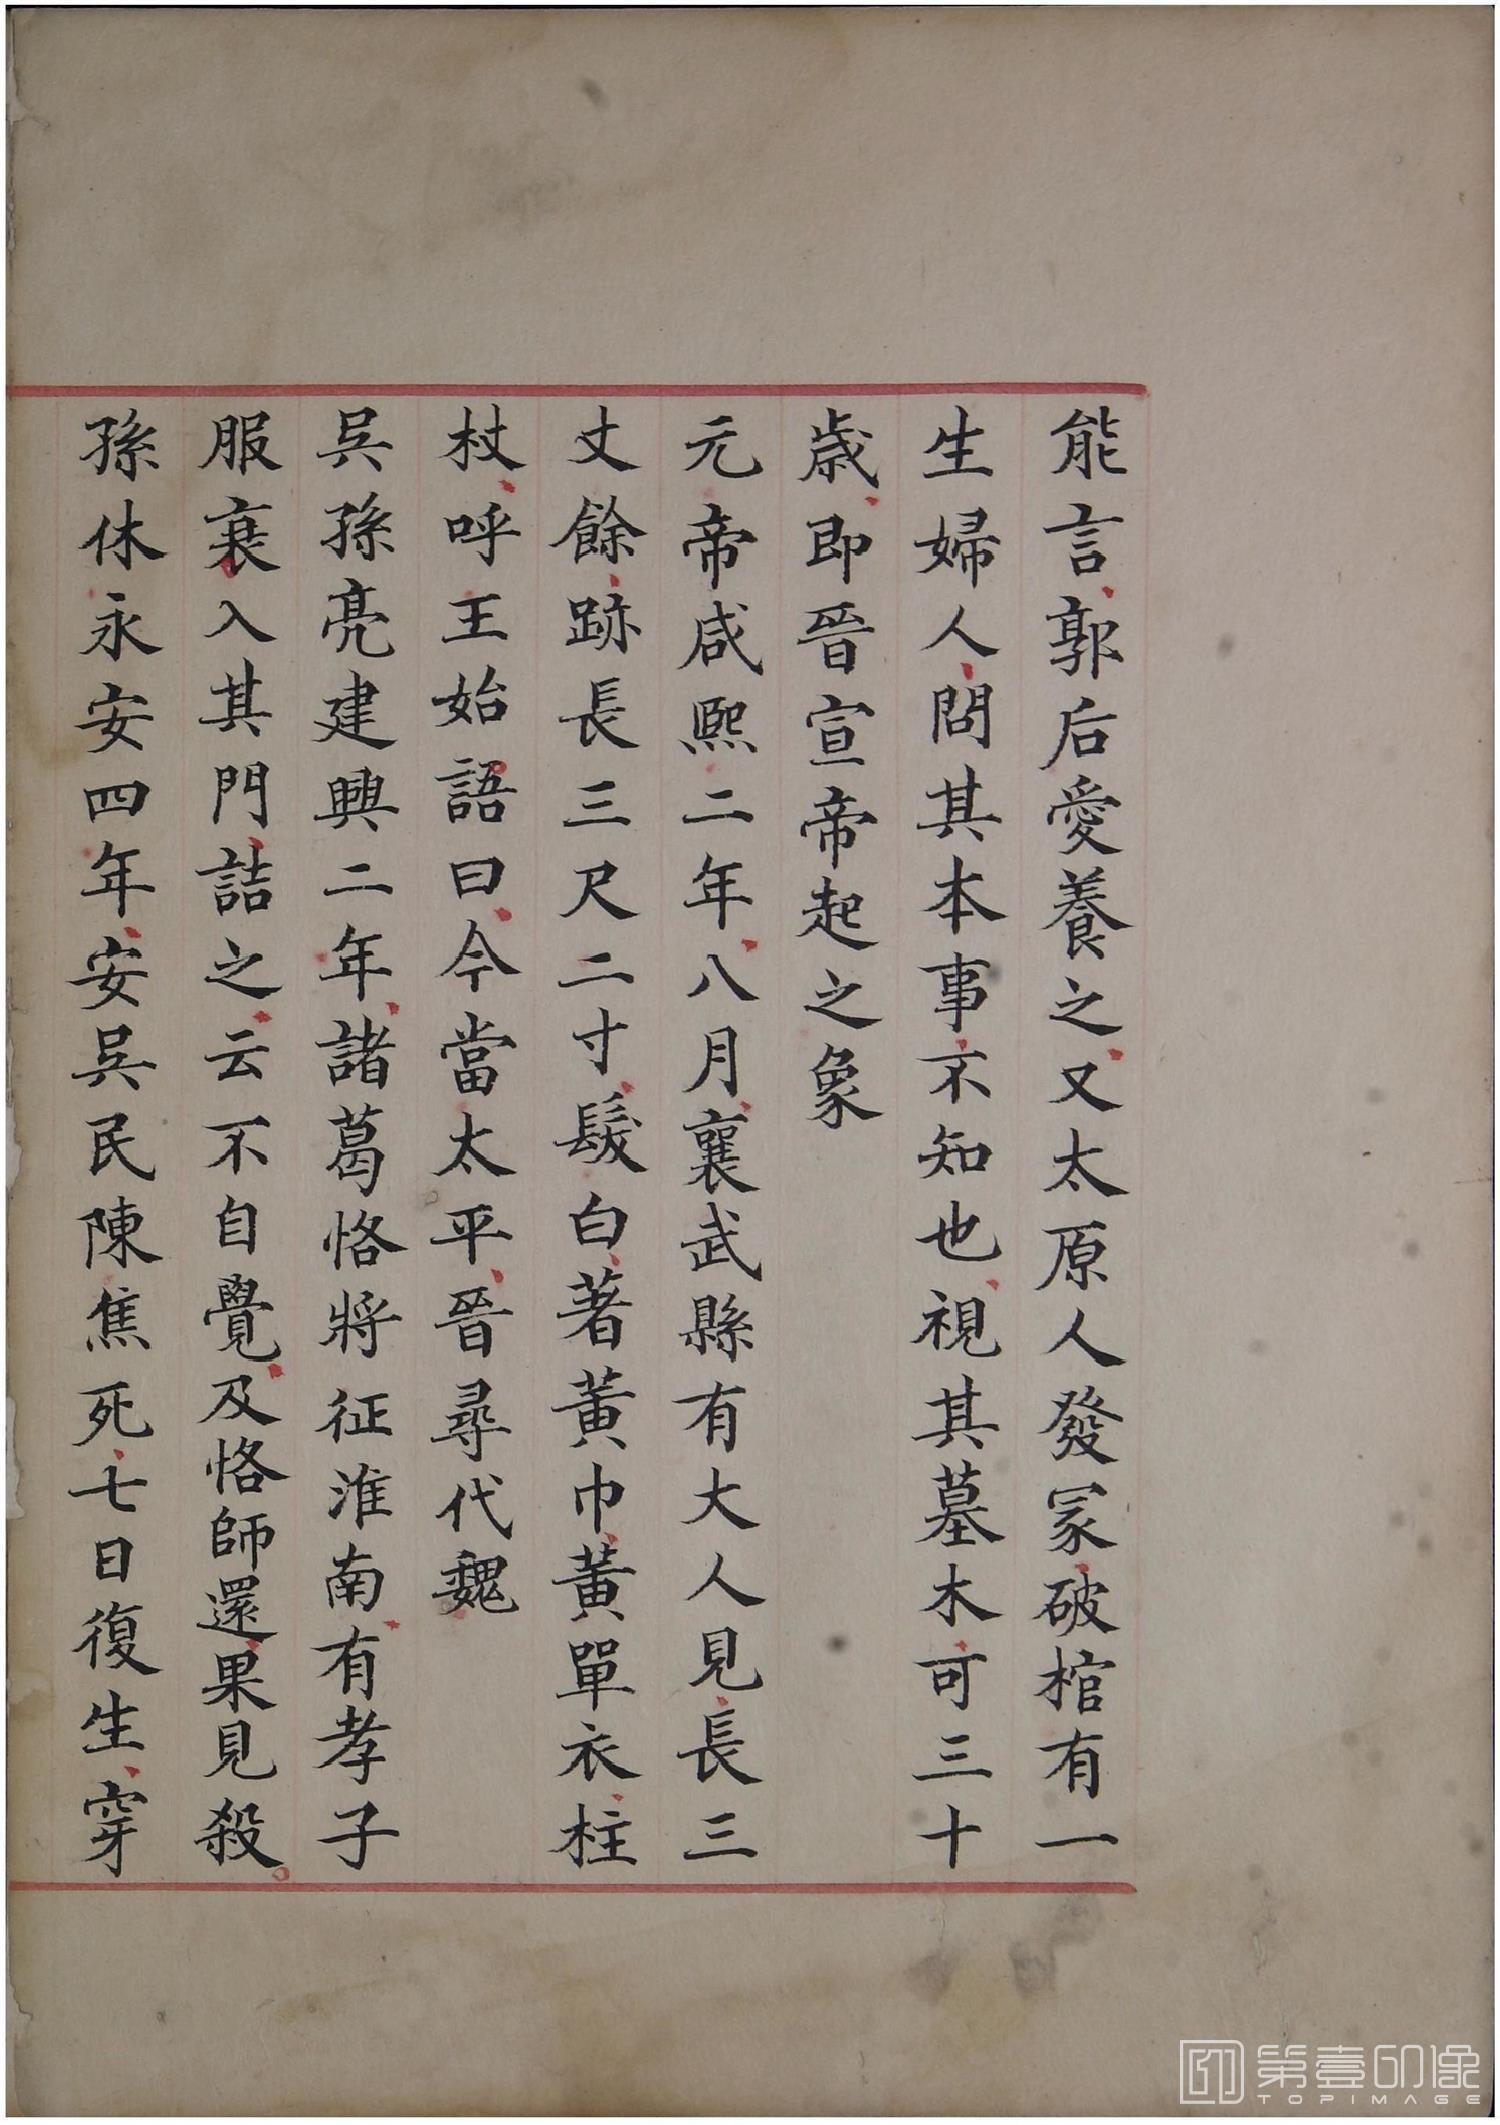 能言、郭后愛養之、又太原人發冢、破棺有一
生婦人、問其本事、不知也、視其墓木、可三十
歲、即晉宣帝起之象
元帝咸熙二年、八月、襄武縣有大人見、長三
丈餘、跡長三尺二寸、髮白、著黃巾、黃單衣、柱
杖、呼王始語曰、今當太平、晉尋代魏
吳孫亮建興二年、諸葛恪將征淮南、有孝子
服衰入其門、詰之、云不自覺、及恪師還、果見殺。
孫休永安四年、安吳民陳焦死、七日復生、穿
第壹印像
TOPIMAGE